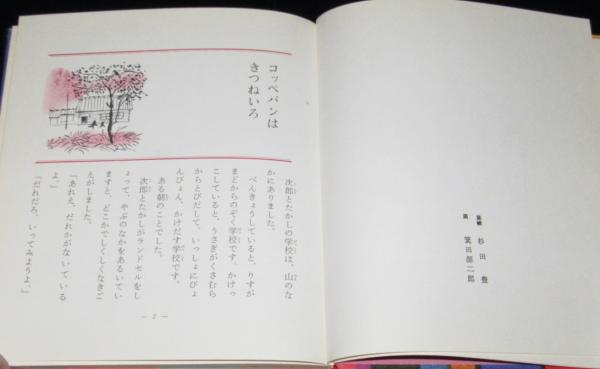 装幀 杉田豊
画 箕田源二郎
コッペパンは
きつねいろ
次郎とたかしの学校は、山のな
かにありました。
べんきょうしていると、りすが
まどからのぞく学校です。かけっ
こしていると、うさぎがくさむら
からとびだして、いっしょにぴょ
んぴょん、かけだす学校です。
ある朝のことでした。
次郎とたかしがランドセルをし
ょって、やぶのなかをあるいてい
ますと、どこかでしくしくなきご
えがしました。
「あれえ、だれかがないている
よ。」
「だれだろ、いってみようよ。」
— 3 —